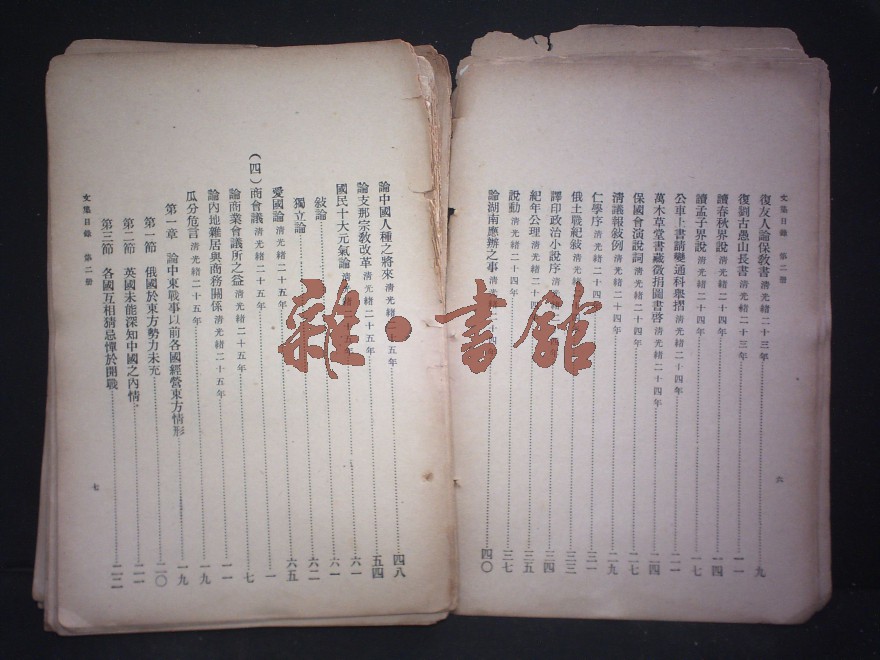 文集目錄 第二册
復友人論保教書 清光緒二十三年 九
復劉古愚山長書 清光緒二十三年 一一
讀春秋界說 清光緒二十四年 一四
讀孟子界說 清光緒二十四年 一七
公車上書請變通科舉摺 清光緒二十四年 二一
萬木草堂書藏徵捐圖書啓 清光緒二十四年 二四
保國會演說詞 清光緒二十四年 二七
清議報敍例 清光緒二十四年 二九
仁學序 清光緒二十四 三一
俄土戰紀敍 清光緒二十 三三
譯印政治小說序 清光 年 三四
紀年公理 清光緒二十四 三五
說動 清光緒二十四年 三七
論湖南應辦之事 清光緒二十四 四〇
六
論中國人種之將來 清光緒二十五年 四八
論支那宗教改革 清光緒二十五年 五四
國民十大元氣論 清光 十五年 六一
敍論 六一
獨立論 六二
愛國論 清光緒二十五年 六五
(四)商會議 清光緒二十五年 一
論商業會議所之益 清光緒二十五年 七
論內地雜居與商務關係 清光緒二十五年 一一
瓜分危言 清光緒二十五年 一九
第一章 論中東戰事以前各國經營東方情形 一九
第一節 俄國於東方勢力未充 二〇
第二節 英國未能深知中國之內情 二一
第三節 各國互相猜忌憚於開戰 二二
文集目錄 第二册
七
雜·書館